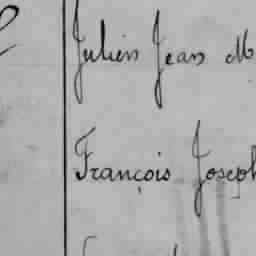 Julien Jean M
François Joseph